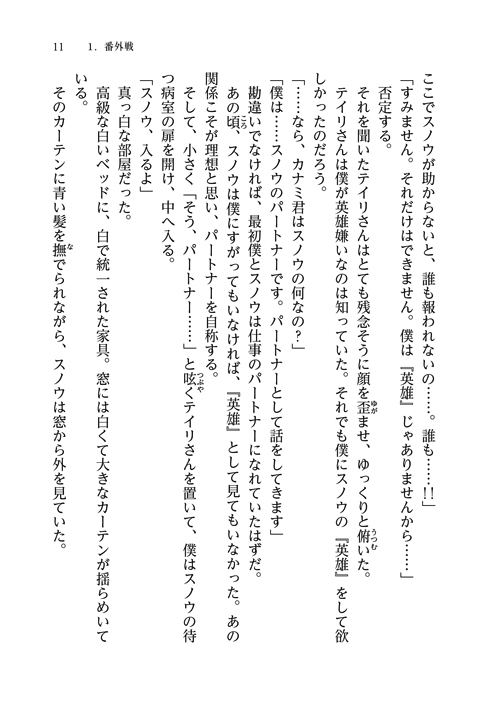 11　1．番外戦
ここでスノウが助からないと、誰も報われないの……。誰も……!!」
「すみません。それだけはできません。僕は『英雄』じゃありませんから……」
否定する。
それを聞いたテイリさんはとても残念そうに顔を歪ませ、ゆっくりと俯いた。
テイリさんは僕が英雄嫌いなのは知っていた。それでも僕にスノウの『英雄』をして欲
しかったのだろう。
「……なら、カナミ君はスノウの何なの？」
「僕は……スノウのパートナーです。パートナーとして話をしてきます」
勘違いでなければ、最初僕とスノウは仕事のパートナーになれていたはずだ。
あの頃、スノウは僕にすがってもいなければ、『英雄』として見てもいなかった。あの
関係こそが理想と思い、パートナーを自称する。
そして、小さく「そう、パートナー……」と呟くテイリさんを置いて、僕はスノウの待
つ病室の扉を開け、中へ入る。
「スノウ、入るよ」
真っ白な部屋だった。
高級な白いベッドに、白で統一された家具。窓には白くて大きなカーテンが揺らめいて
いる。
そのカーテンに青い髪を撫でられながら、スノウは窓から外を見ていた。